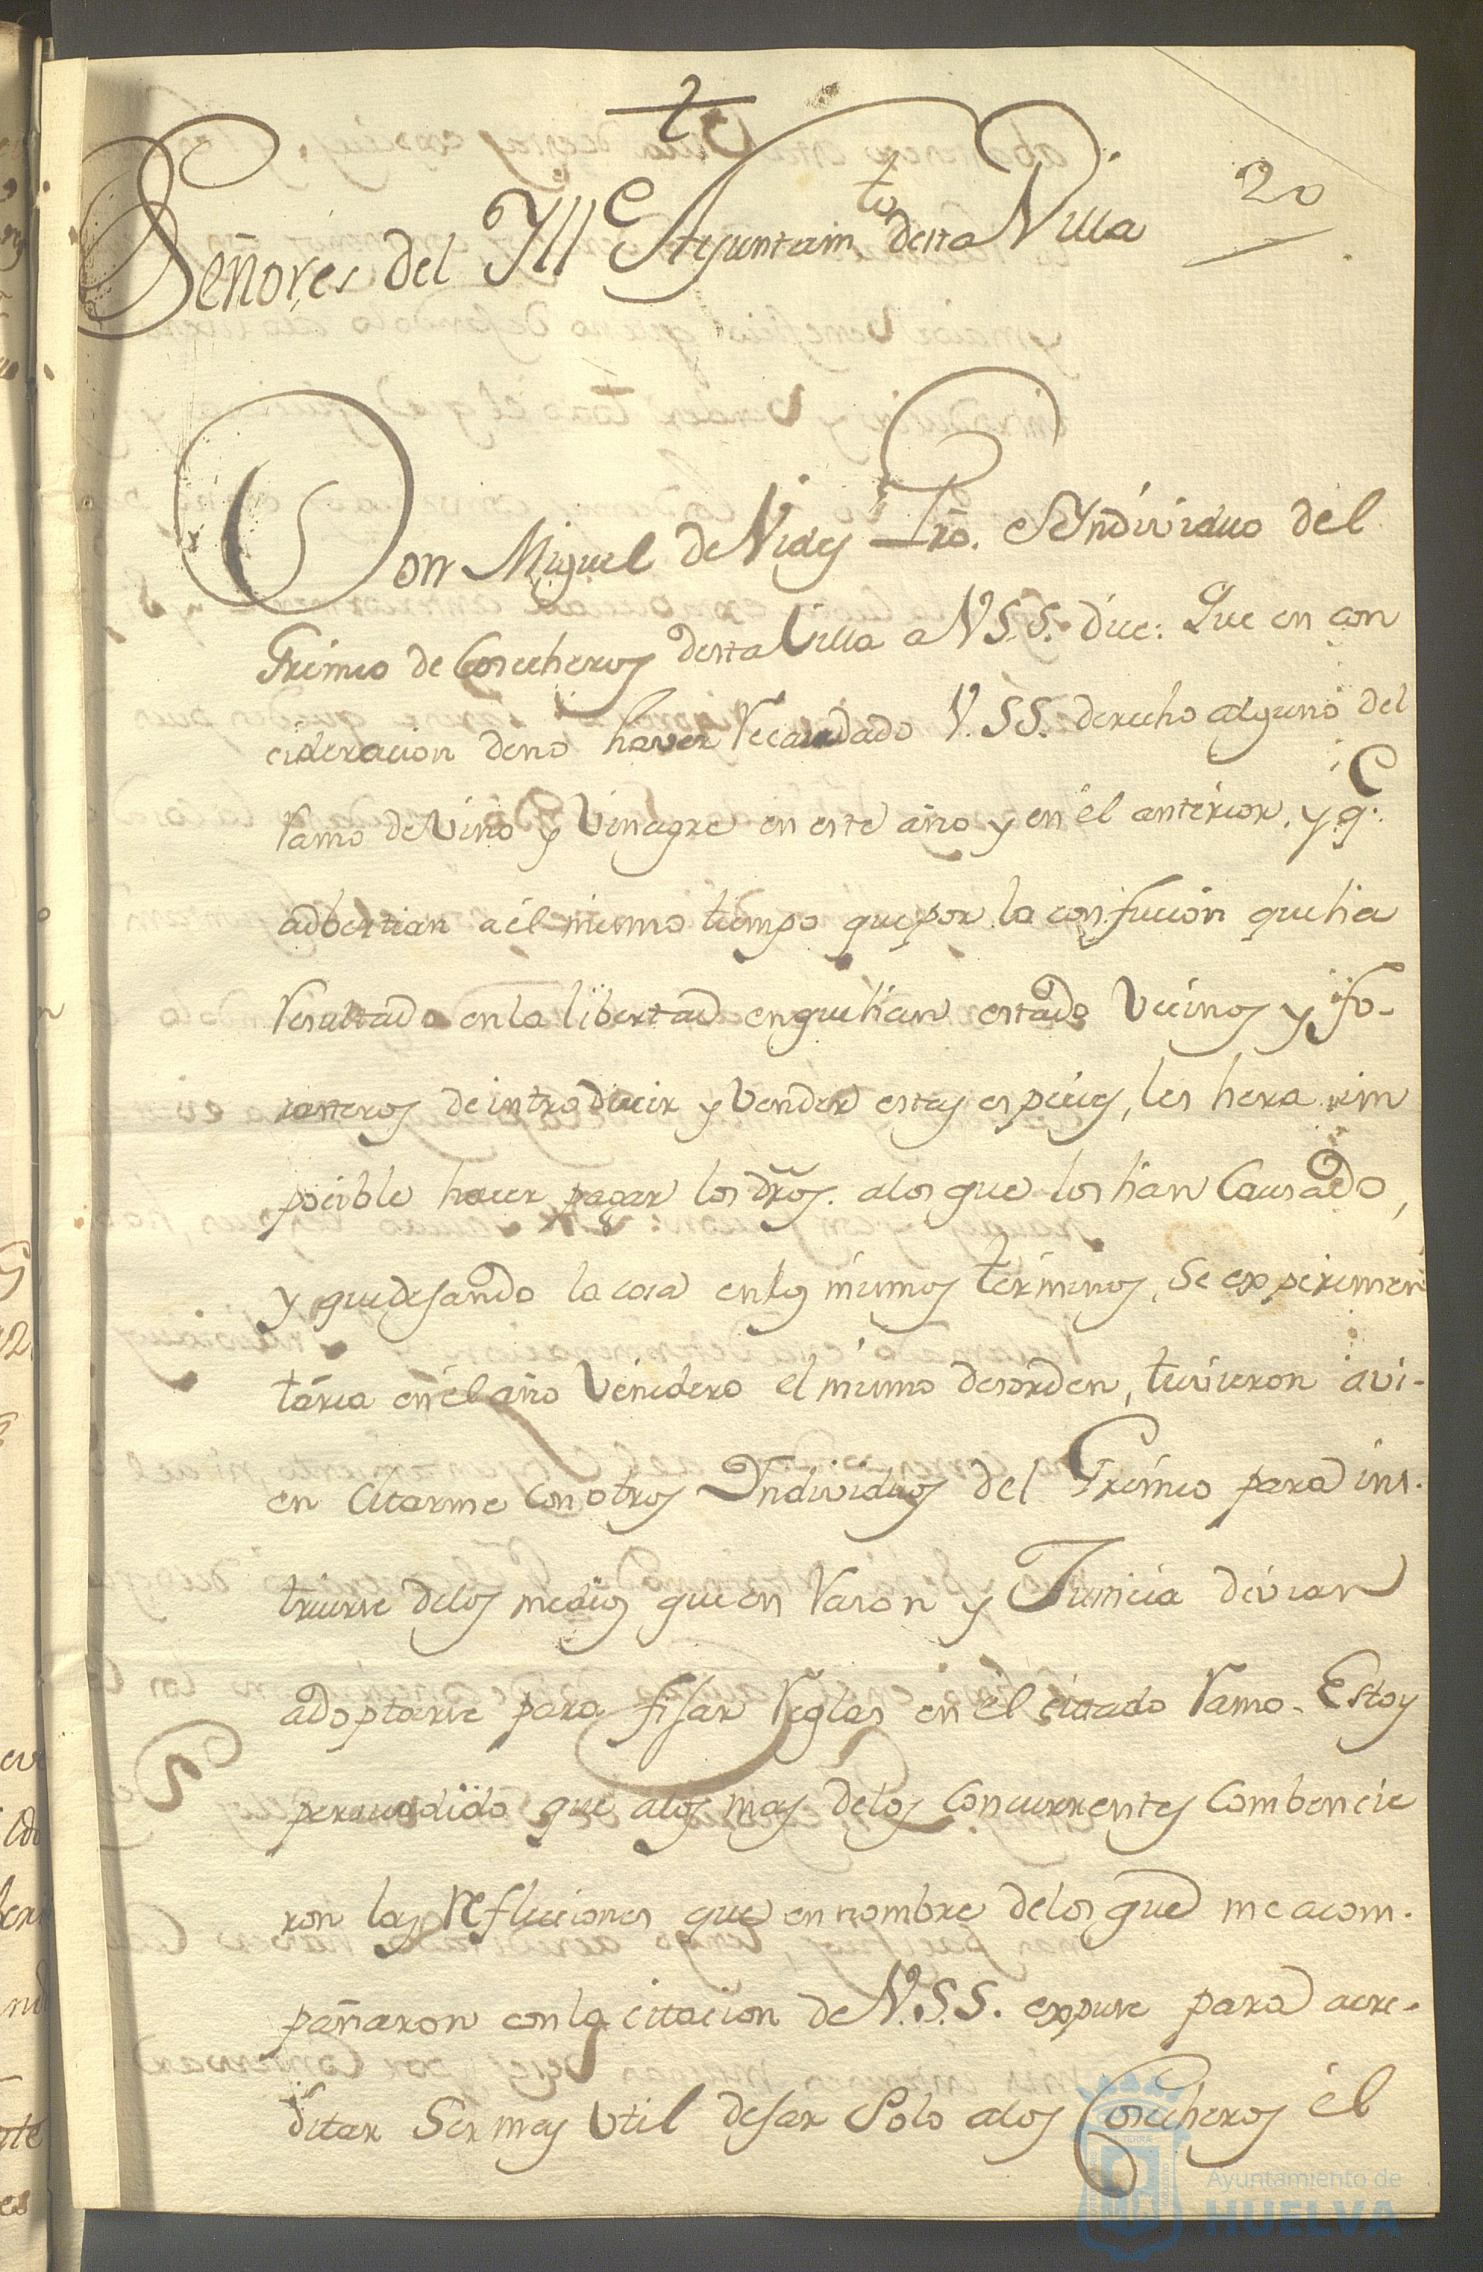 20
Señores del Yll.e Ayuntam.to desta Villa
Don Miguel de Vides Pro. e Yndividuo del
Gremio de Cosecheros desta Villa a V.S.S. dice: Que en con
cideracion deno haver Recaudado V.SS. derecho alguno del
Ramo de Vino y Vinagre en este año y en el anterior, y q.e
adbertian a él mismo tiempo quepor la confucion queha
Resultado en la libertad enquehan estado Vecinos y fo-
rasteros de introducir y Vender estas especies, les hera im
pocible hacer pagar los dros. alos que los han Causado,
y quedejando la cosa enlos mismos terminos, Se experimen
taria en el año Venidero el mismo desorden, tuvieron avi-
en Citarme con otros Yndividuos del Gremio para ins-
truirse delos medios que en Rason y Justicia devian
adoptarse para fijar Reglas en el citado Ramo. Estoy
persuadido que alos mas delos Concurrentes Combencie
ron las Reflecciones que en nombre delos que me acom-
pañaron con la citacion de V.S.S. expuse para acre-
ditar Ser mas Util dejar Solo alos Cosecheros él
Ayuntamiento de
HUELVA